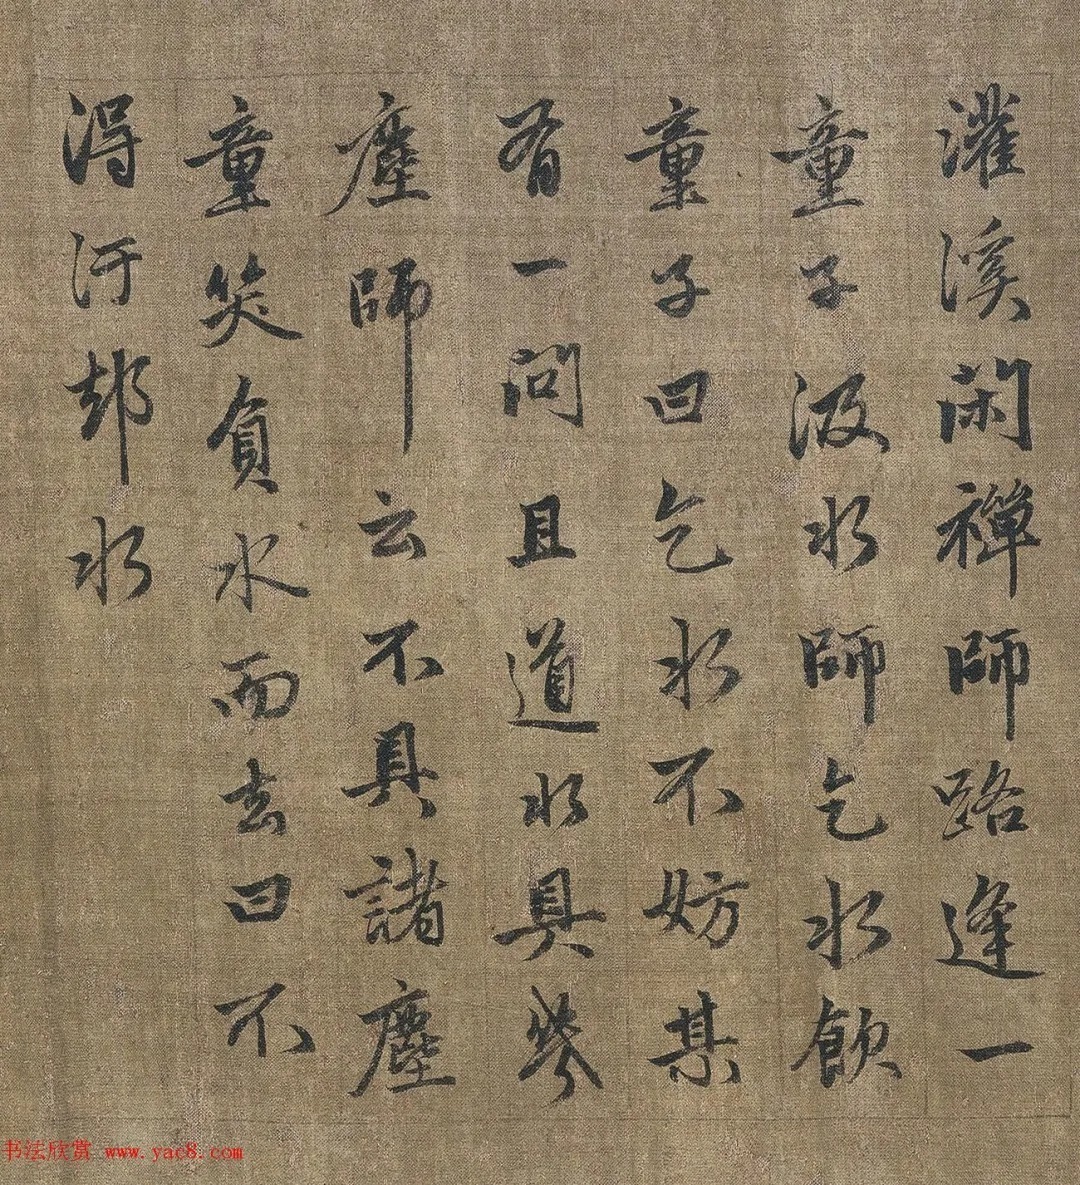 灌溪閑禪師路逢一
童子汲水師乞水飲
童子曰乞水不妨某
有一問且道水具幾
塵師云不具諸塵
童笑負水而去曰不
淂汙却水
书法欣赏 www.yac8.com